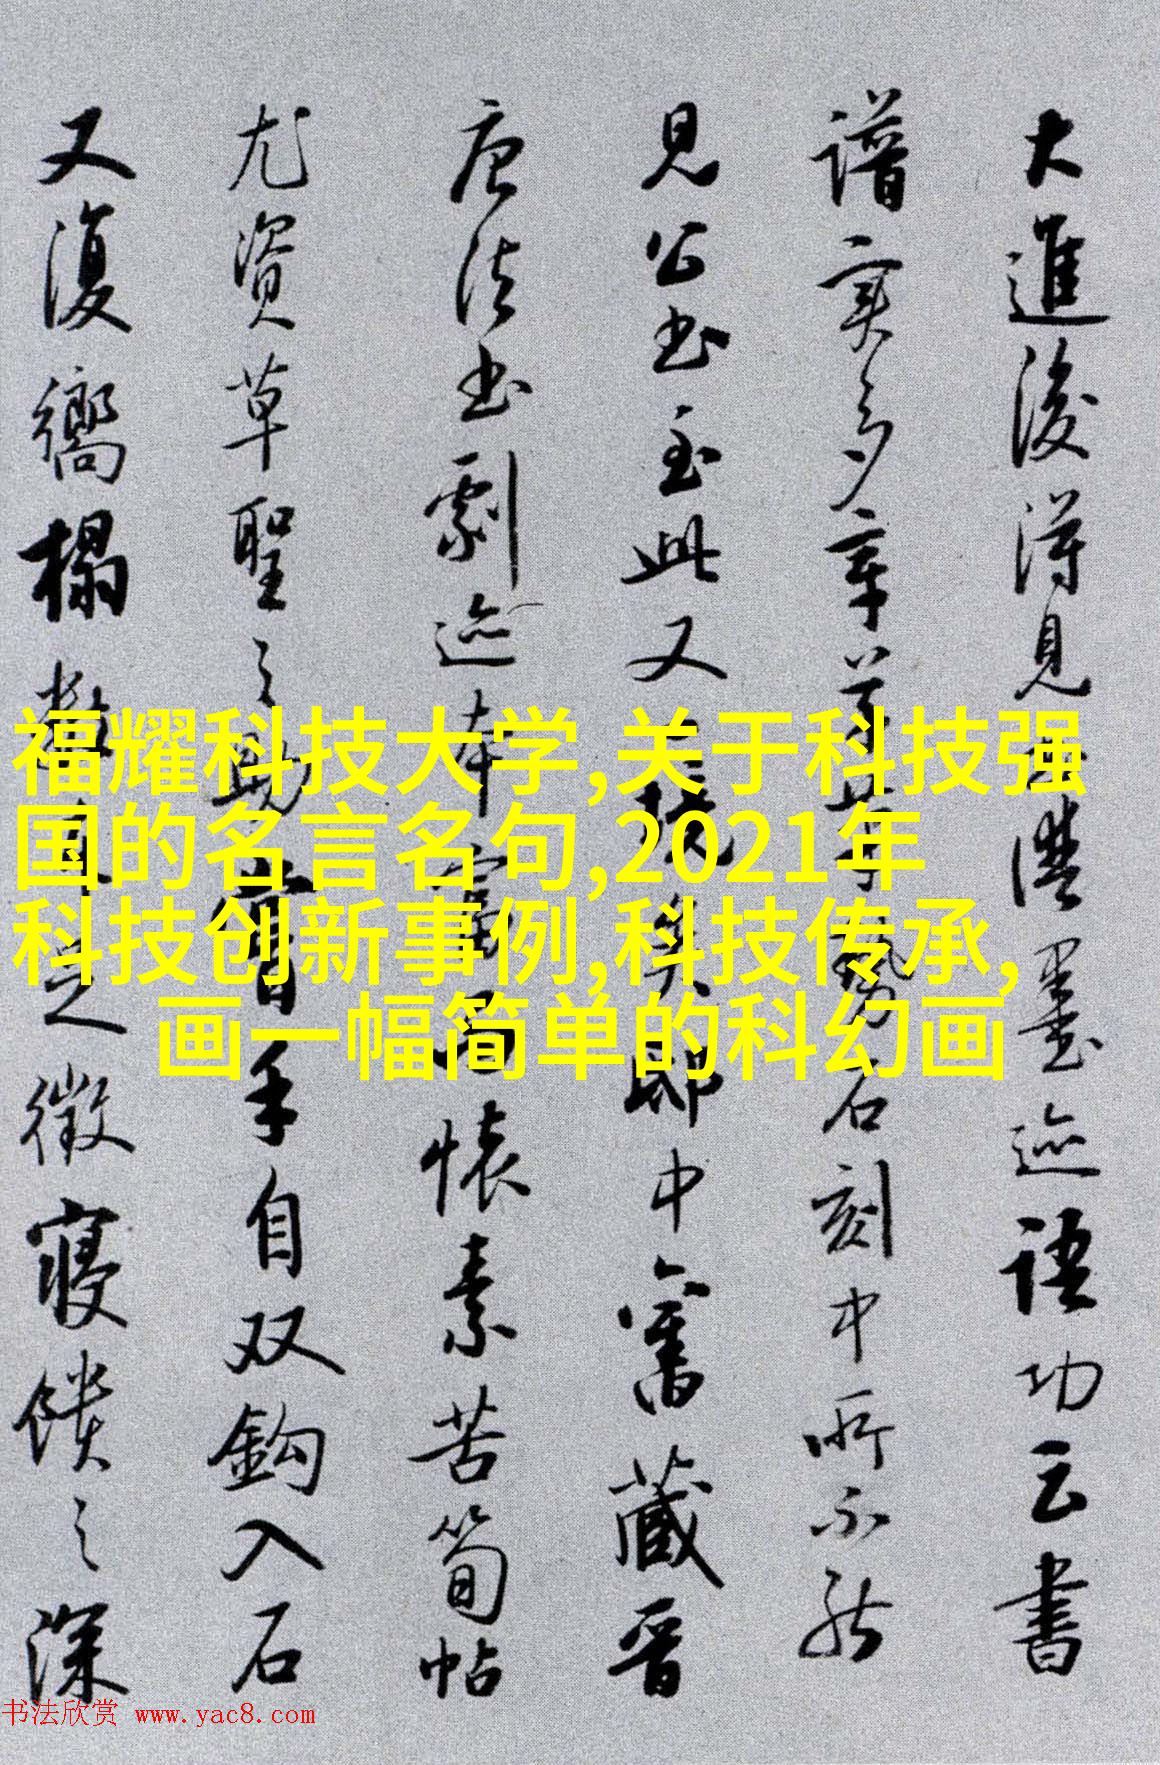 大進後得見墨迹語功云書
譜實多章草石刻中所不能
見公书至此又邸中舊藏晋
唐法书劇迹本懷素苦筍帖
尤資草聖之助嘗手自双鈎入石
又復嚮榻數之徵寝饋之深
福耀科技大学,关于科技强
国的名言名句,2021年
科技创新事例,科技传承,
画一幅简单的科幻画
书法欣赏 www.yac8.com